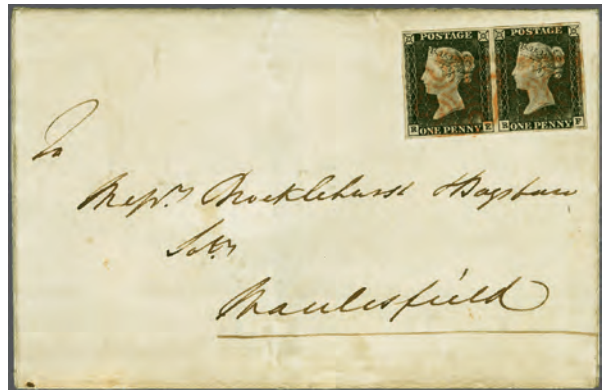 POSTAGE POSTAGE
E ONE PENNY F ONE PENNY
To
Messrs Brocklehurst & Bagshaw
Solrs
Macclesfield